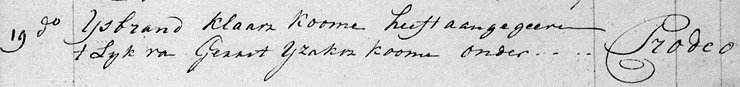 19 do Ysbrand klaasz koome heeft aangegeeven
t Lyk van Gerrit Yzaksz koome onder - - - - Prodeo